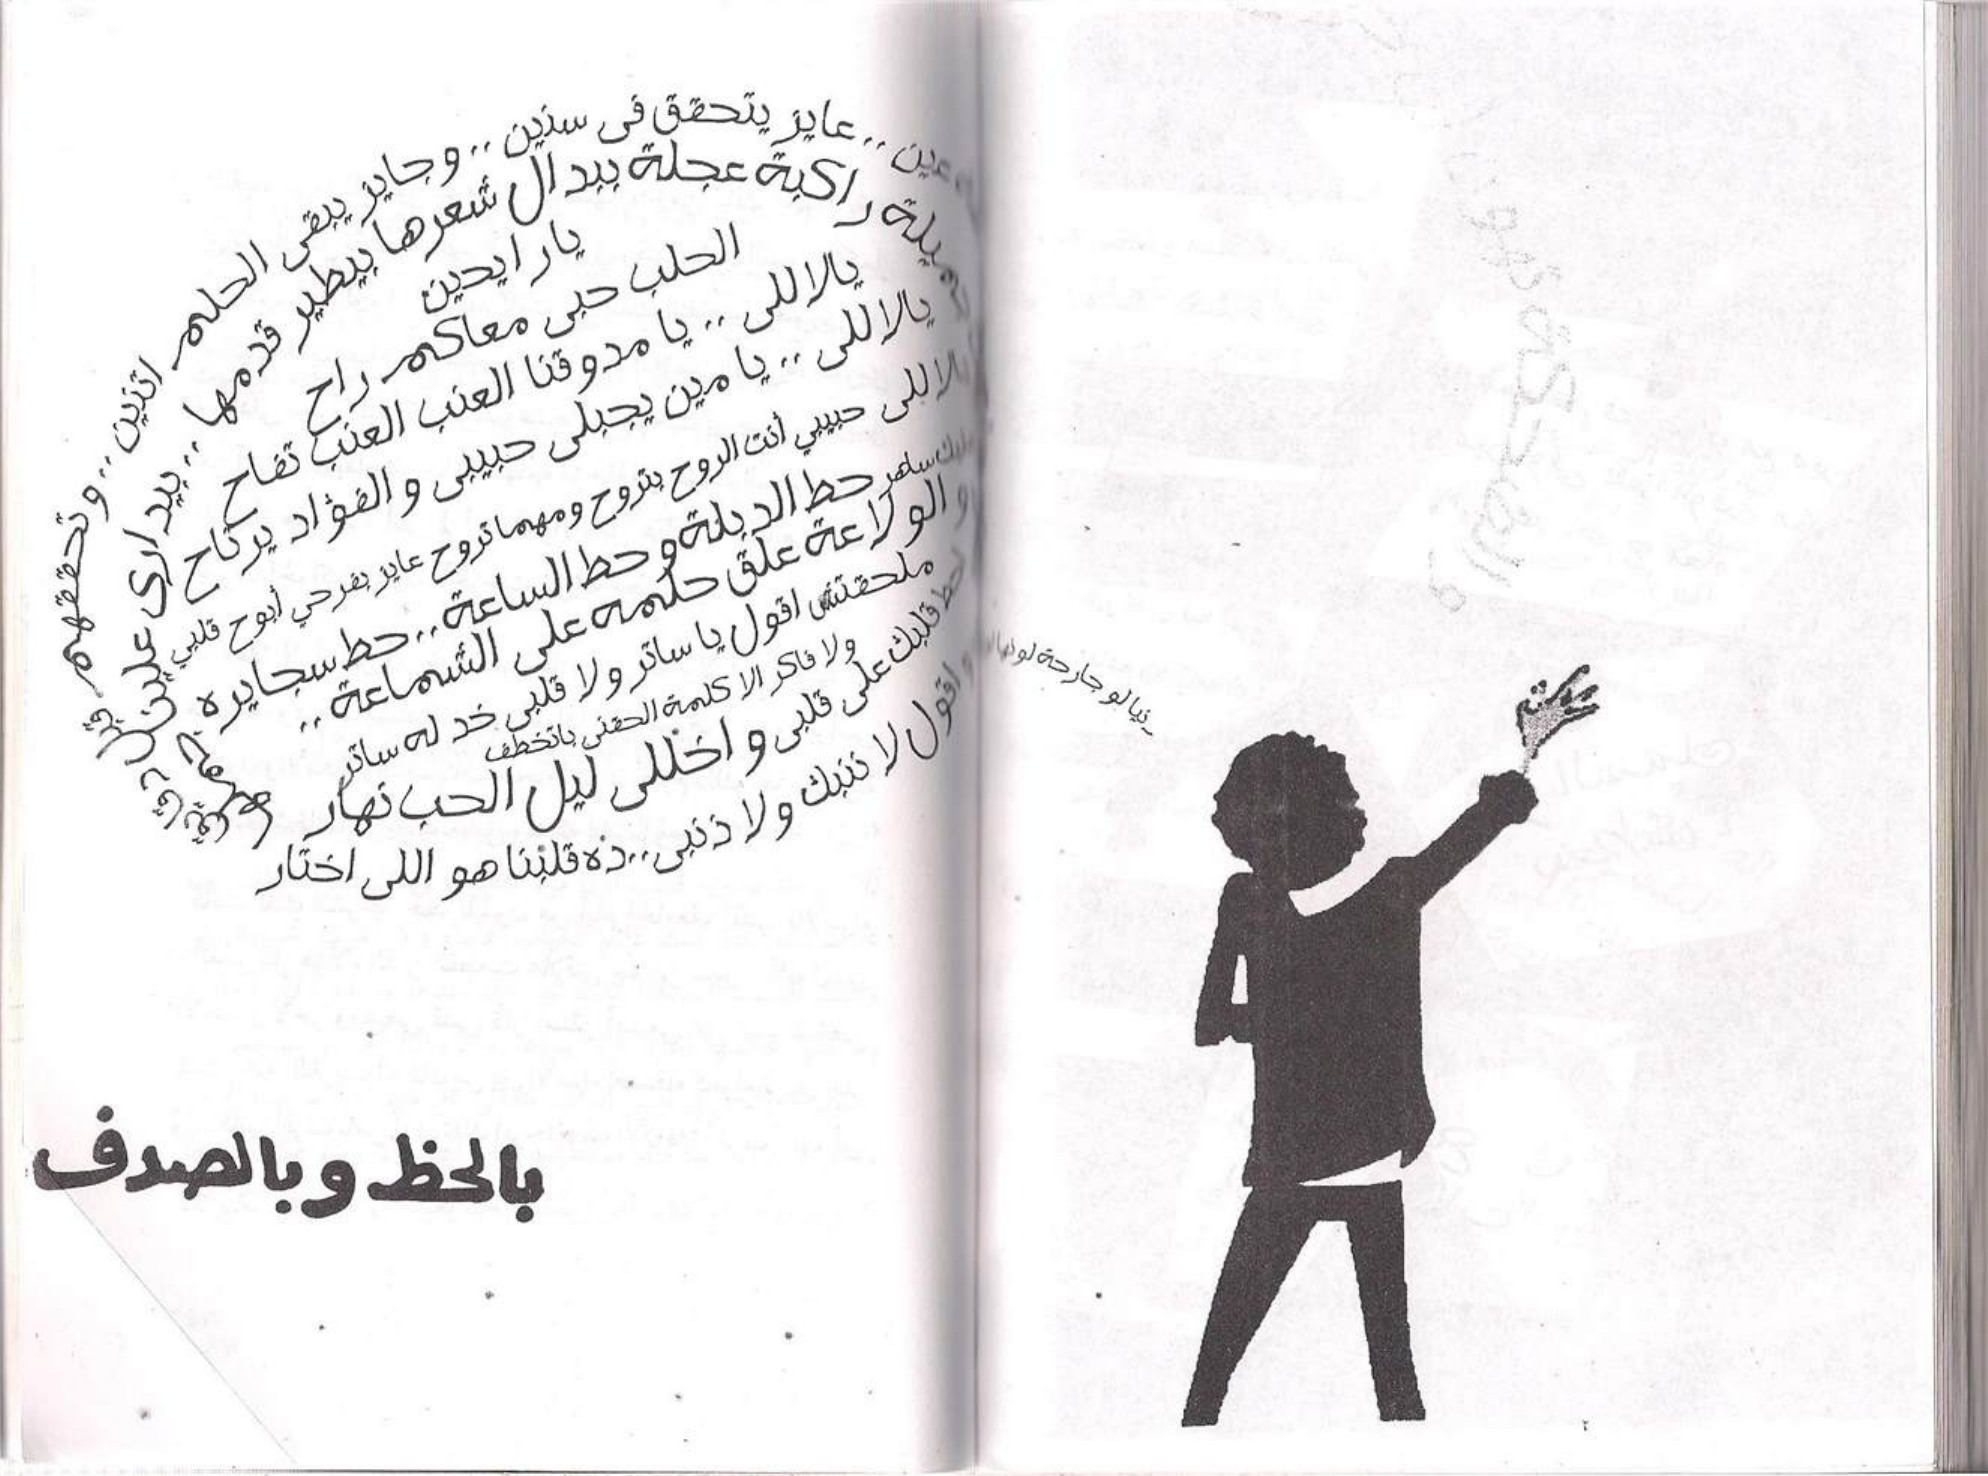 عين .. عايز يتحقق فى سنين .. وجايز يبقى الحلم اتنين .. وتحققهم
جميلة راكبة عجلة ببدال شعرها بيطير قدمها .. بيدارى علين
يارايحين
الحلب حبى معاكم راح
يالاللى .. يا مدوقنا العنب العنب تفاح
يالاللى .. يا مين يجبلى حبيبى والفؤاد يرتاح
حبيبي أنت الروح بتروح ومهما تروح عايز بفرحي أبوح قلبي
ساهر حط الدبلة وحط الساعة .. حط سجايره
والولاعة علق حلمه على الشماعة ..
ملحقتش اقول يا ساتر ولا قلبى خد له ساتر
ولا فاكر الا كلمة الحقنى باتخطف
قلبك على قلبى واخللى ليل الحب نهار
واقول لا ذنبك ولا ذنبى .. ده قلبنا هو اللى اختار
لو جارحة لونها
بالحظ وبالصدف